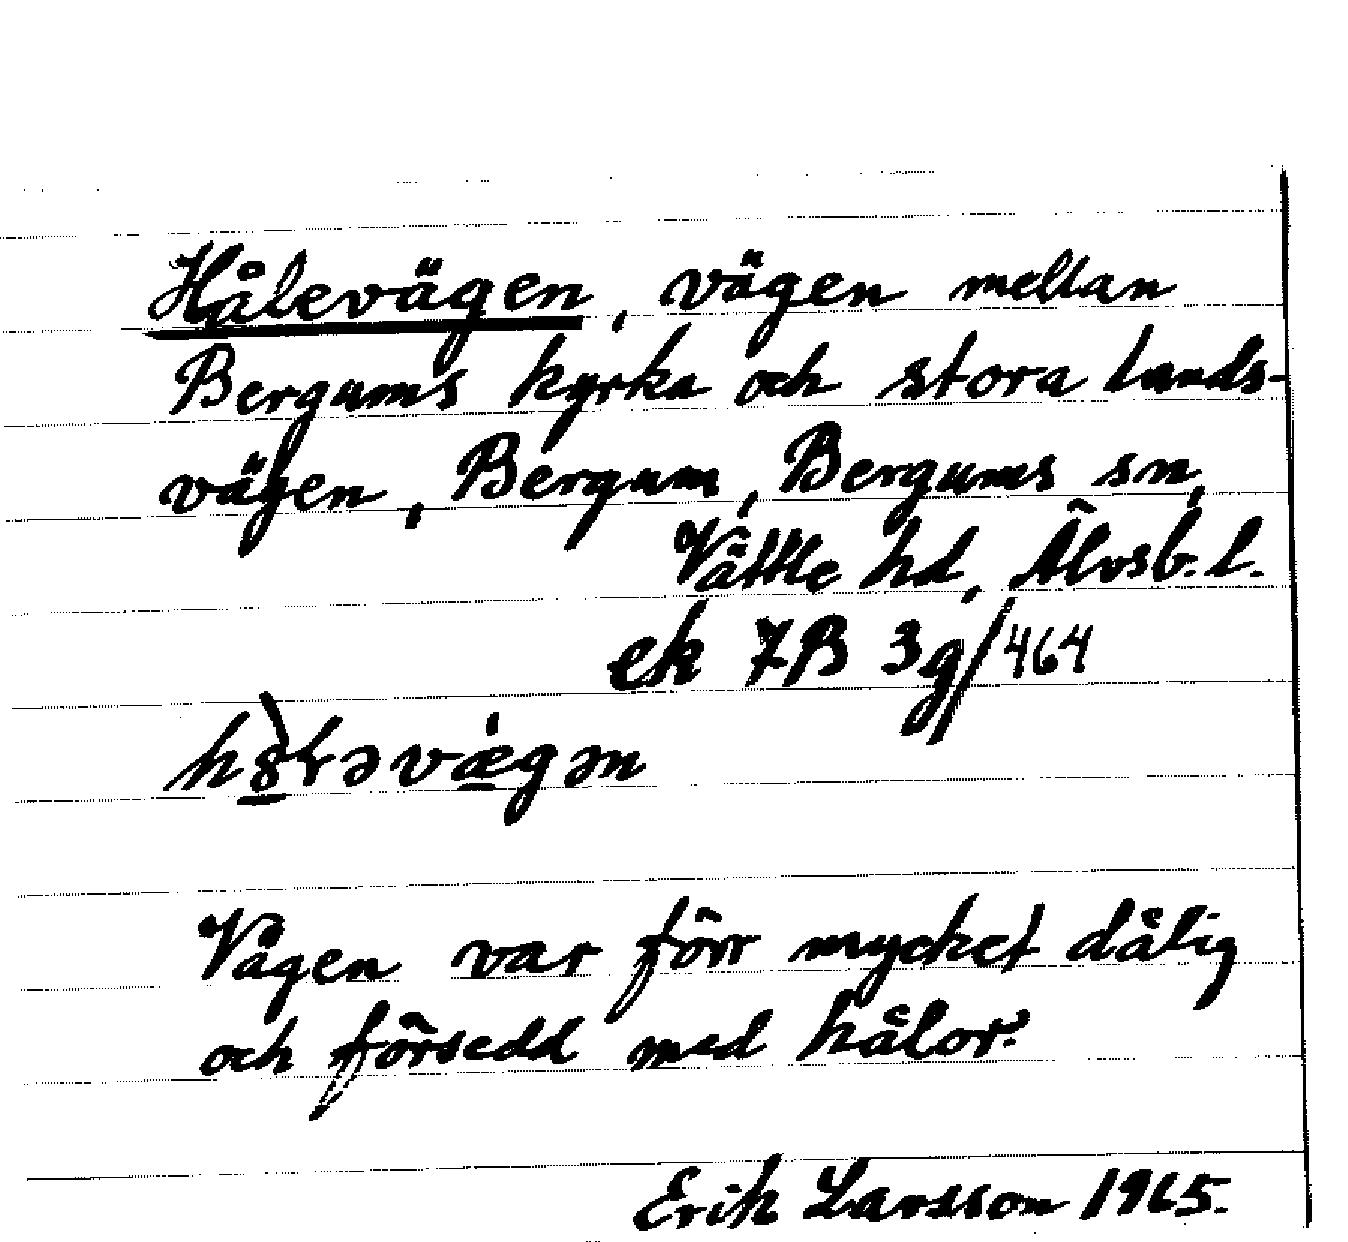 Hålevägen, vägen mellan
Bergums kyrka och stora lands-
vägen, Bergum, Bergums sn,
Vättle hd, Älvsb. l.
ek 7B 3g/464
Vägen var förr mycket dålig
och försedd med hålor.
Erik Larsson 1965.